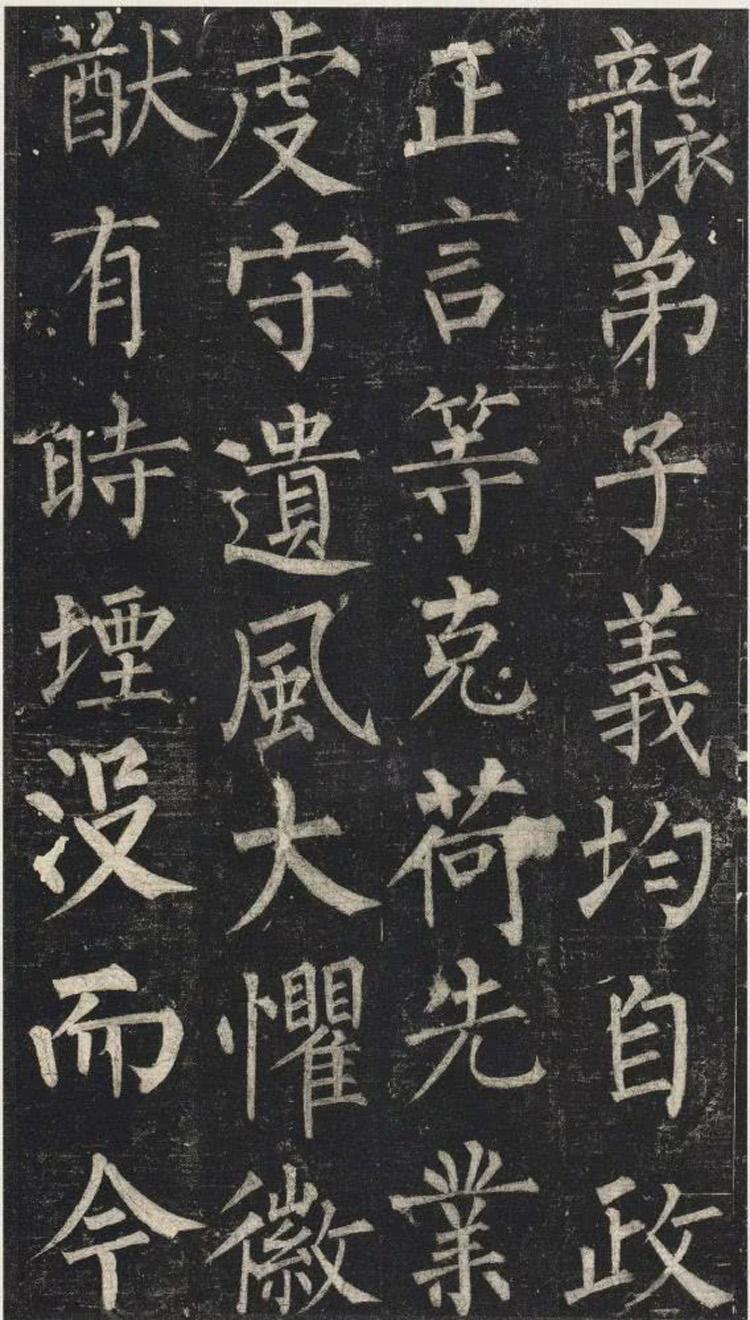 襲弟子義均自政
正言等克荷先業
虔守遺風大懼徽
猷有時堙没而今